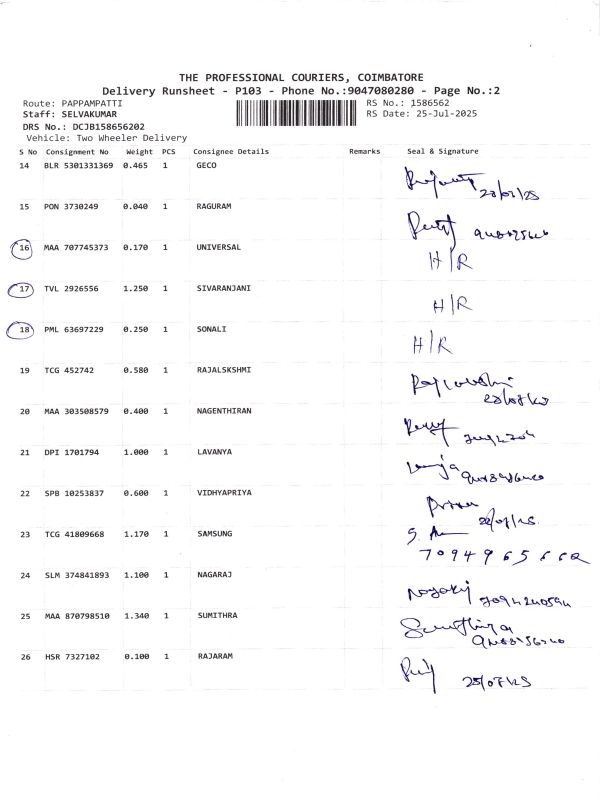 THE PROFESSIONAL COURIERS, COIMBATORE
Delivery Runsheet - P103 - Phone No.:9047080280 - Page No.:2
Route: PAPPAMPATTI RS No.: 1586562
Staff: SELVAKUMAR RS Date: 25-Jul-2025
DRS No.: DCJB158656202
Vehicle: Two Wheeler Delivery
S No Consignment No Weight PCS Consignee Details Remarks Seal & Signature
14 BLR 5301331369 0.465 1 GECO
15 PON 3730249 0.040 1 RAGURAM
16 MAA 707745373 0.170 1 UNIVERSAL H/R
17 TVL 2926556 1.250 1 SIVARANJANI H/R
18 PML 63697229 0.250 1 SONALI H/R
19 TCG 452742 0.580 1 RAJALSKSHMI
20 MAA 303508579 0.400 1 NAGENTHIRAN
21 DPI 1701794 1.000 1 LAVANYA
22 SPB 10253837 0.600 1 VIDHYAPRIYA
23 TCG 41809668 1.170 1 SAMSUNG
24 SLM 374841893 1.100 1 NAGARAJ
25 MAA 870798510 1.340 1 SUMITHRA
26 HSR 7327102 0.100 1 RAJARAM
25/07/25